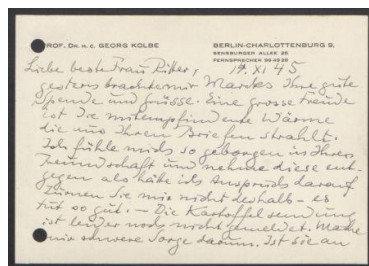 PROF. DR. H. C. GEORG KOLBE
BERLIN-CHARLOTTENBURG 9,
SENSBURGER ALLEE 25
FERNSPRECHER 99 43 28
19. XI 45
Liebe beste Frau Ritter,
gestern brachte mir Marcks Ihre gute
Spende und Grüsse. Eine grosse Freude
ist die mitempfindende Wärme
die uns Ihren Briefen strahlt.
Ich fühle mich so geborgen in Ihrer
Freundschaft und nehme diese ent-
gegen als hätte ich Anspruch darauf
Zürnen Sie mir nicht deshalb – es
tut so gut. – Die Kartoffelsendung
ist leider noch nicht gemeldet.
mir schwere Sorge darum. Ist sie an